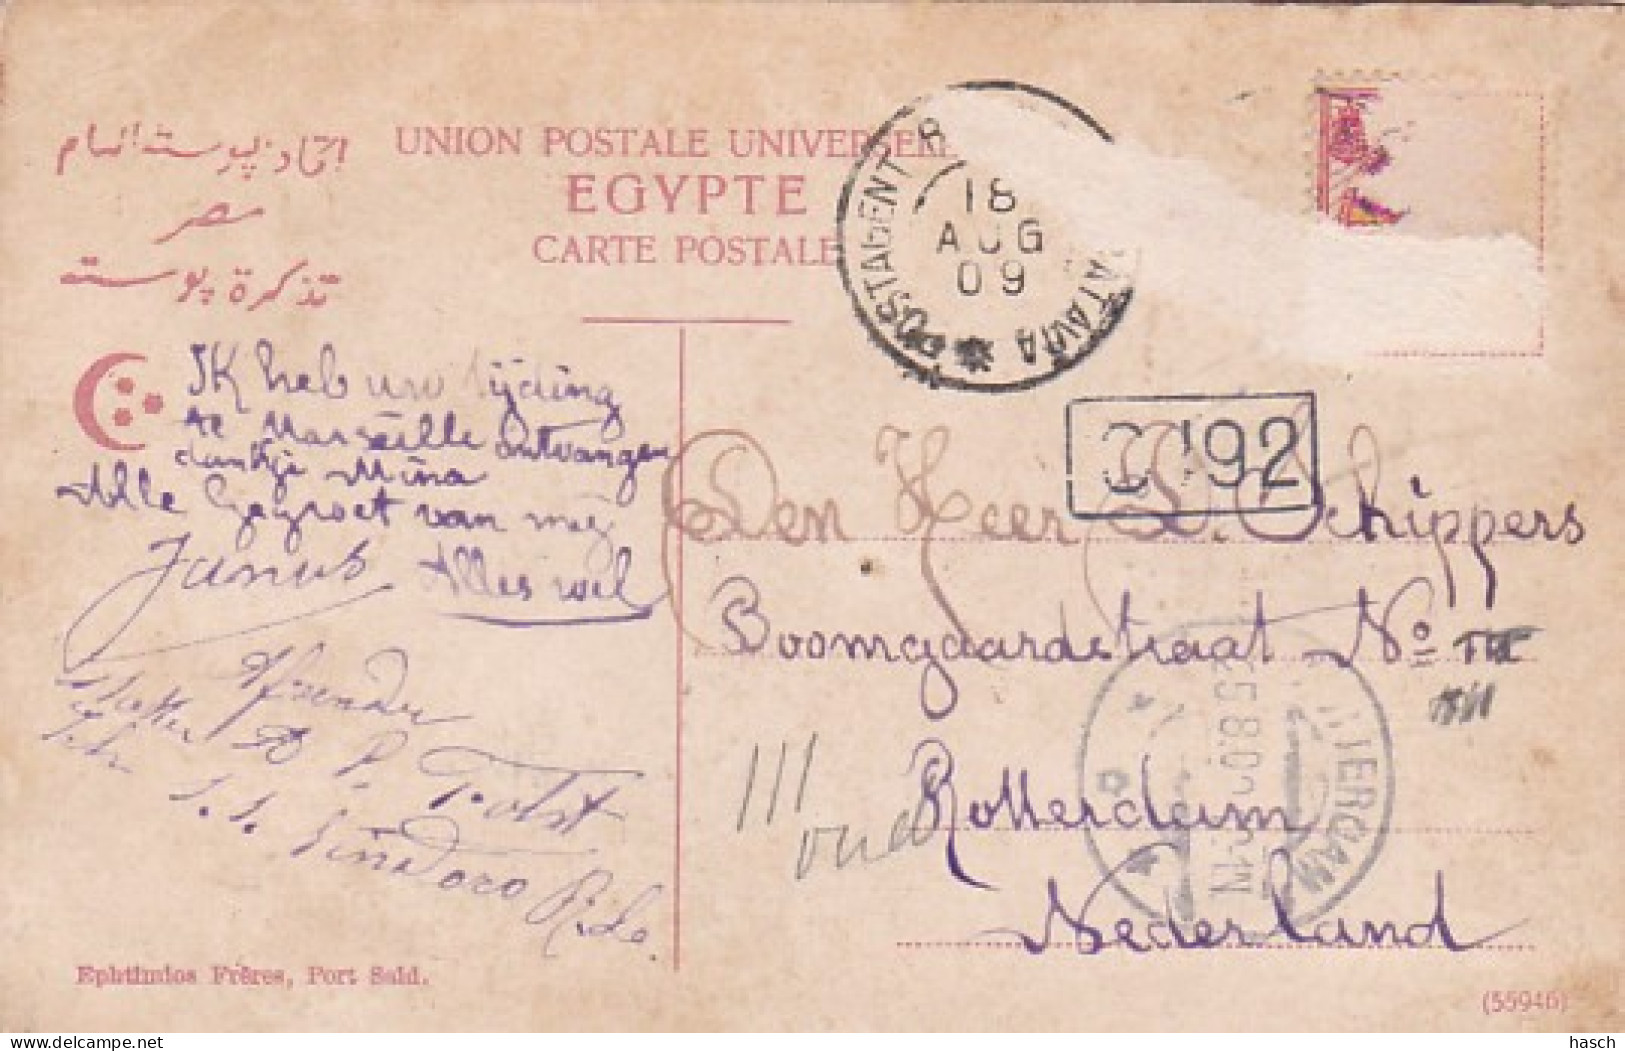 اتحاد پوسته العام
مصر
تذكرة پوسته
UNION POSTALE UNIVERSE
EGYPTE
CARTE POSTALE
POSTAGENT R ATAVIA
18
AUG
09
Ik heb uw tijding
te Marseille ontvangen
dankje Mina
Alle Gegroet van mij
Janus Alles wel
Afzender
P. Tolst
S.S. Sindoro
Den Heer Schippers
Boomgaardstraat No
Rotterdam
Nederland
III
'92
Ephtimios Frères, Port Said.
(55946)
delcampe.net
hasch